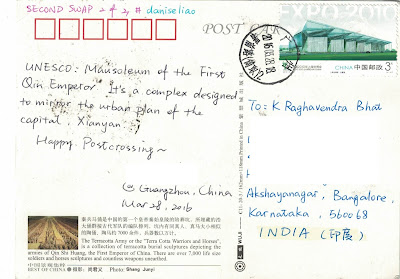 SECOND SWAP 2 of 2, # daniseliao
POST CARD
EXPO 2010
CHINA 中国邮政
3元
2016.03.28
UNESCO: Mausoleum of the First
Qin Emperor. It's a complex designed
to mirror the urban plan of the
capital, Xianyan :)
Happy Postcrossing~
@ Guangzhou, China
Mar 28, 2016
To: K Raghavendra Bhat
Akshayanagar, Bangalore,
Karnataka, 560068
INDIA (印度)
秦兵马俑是中国的第一个皇帝秦始皇陵的陪葬坑,
The Terracotta Army or the "Terra Cotta Warriors and Horses",
is a collection of terracotta burial sculptures depicting the
armies of Qin Shi Huang, the First Emperor of China. There are over 7,000 life size
soldiers and horses sculptures and countless weapons unearthed.
Photo: Shang Junyi